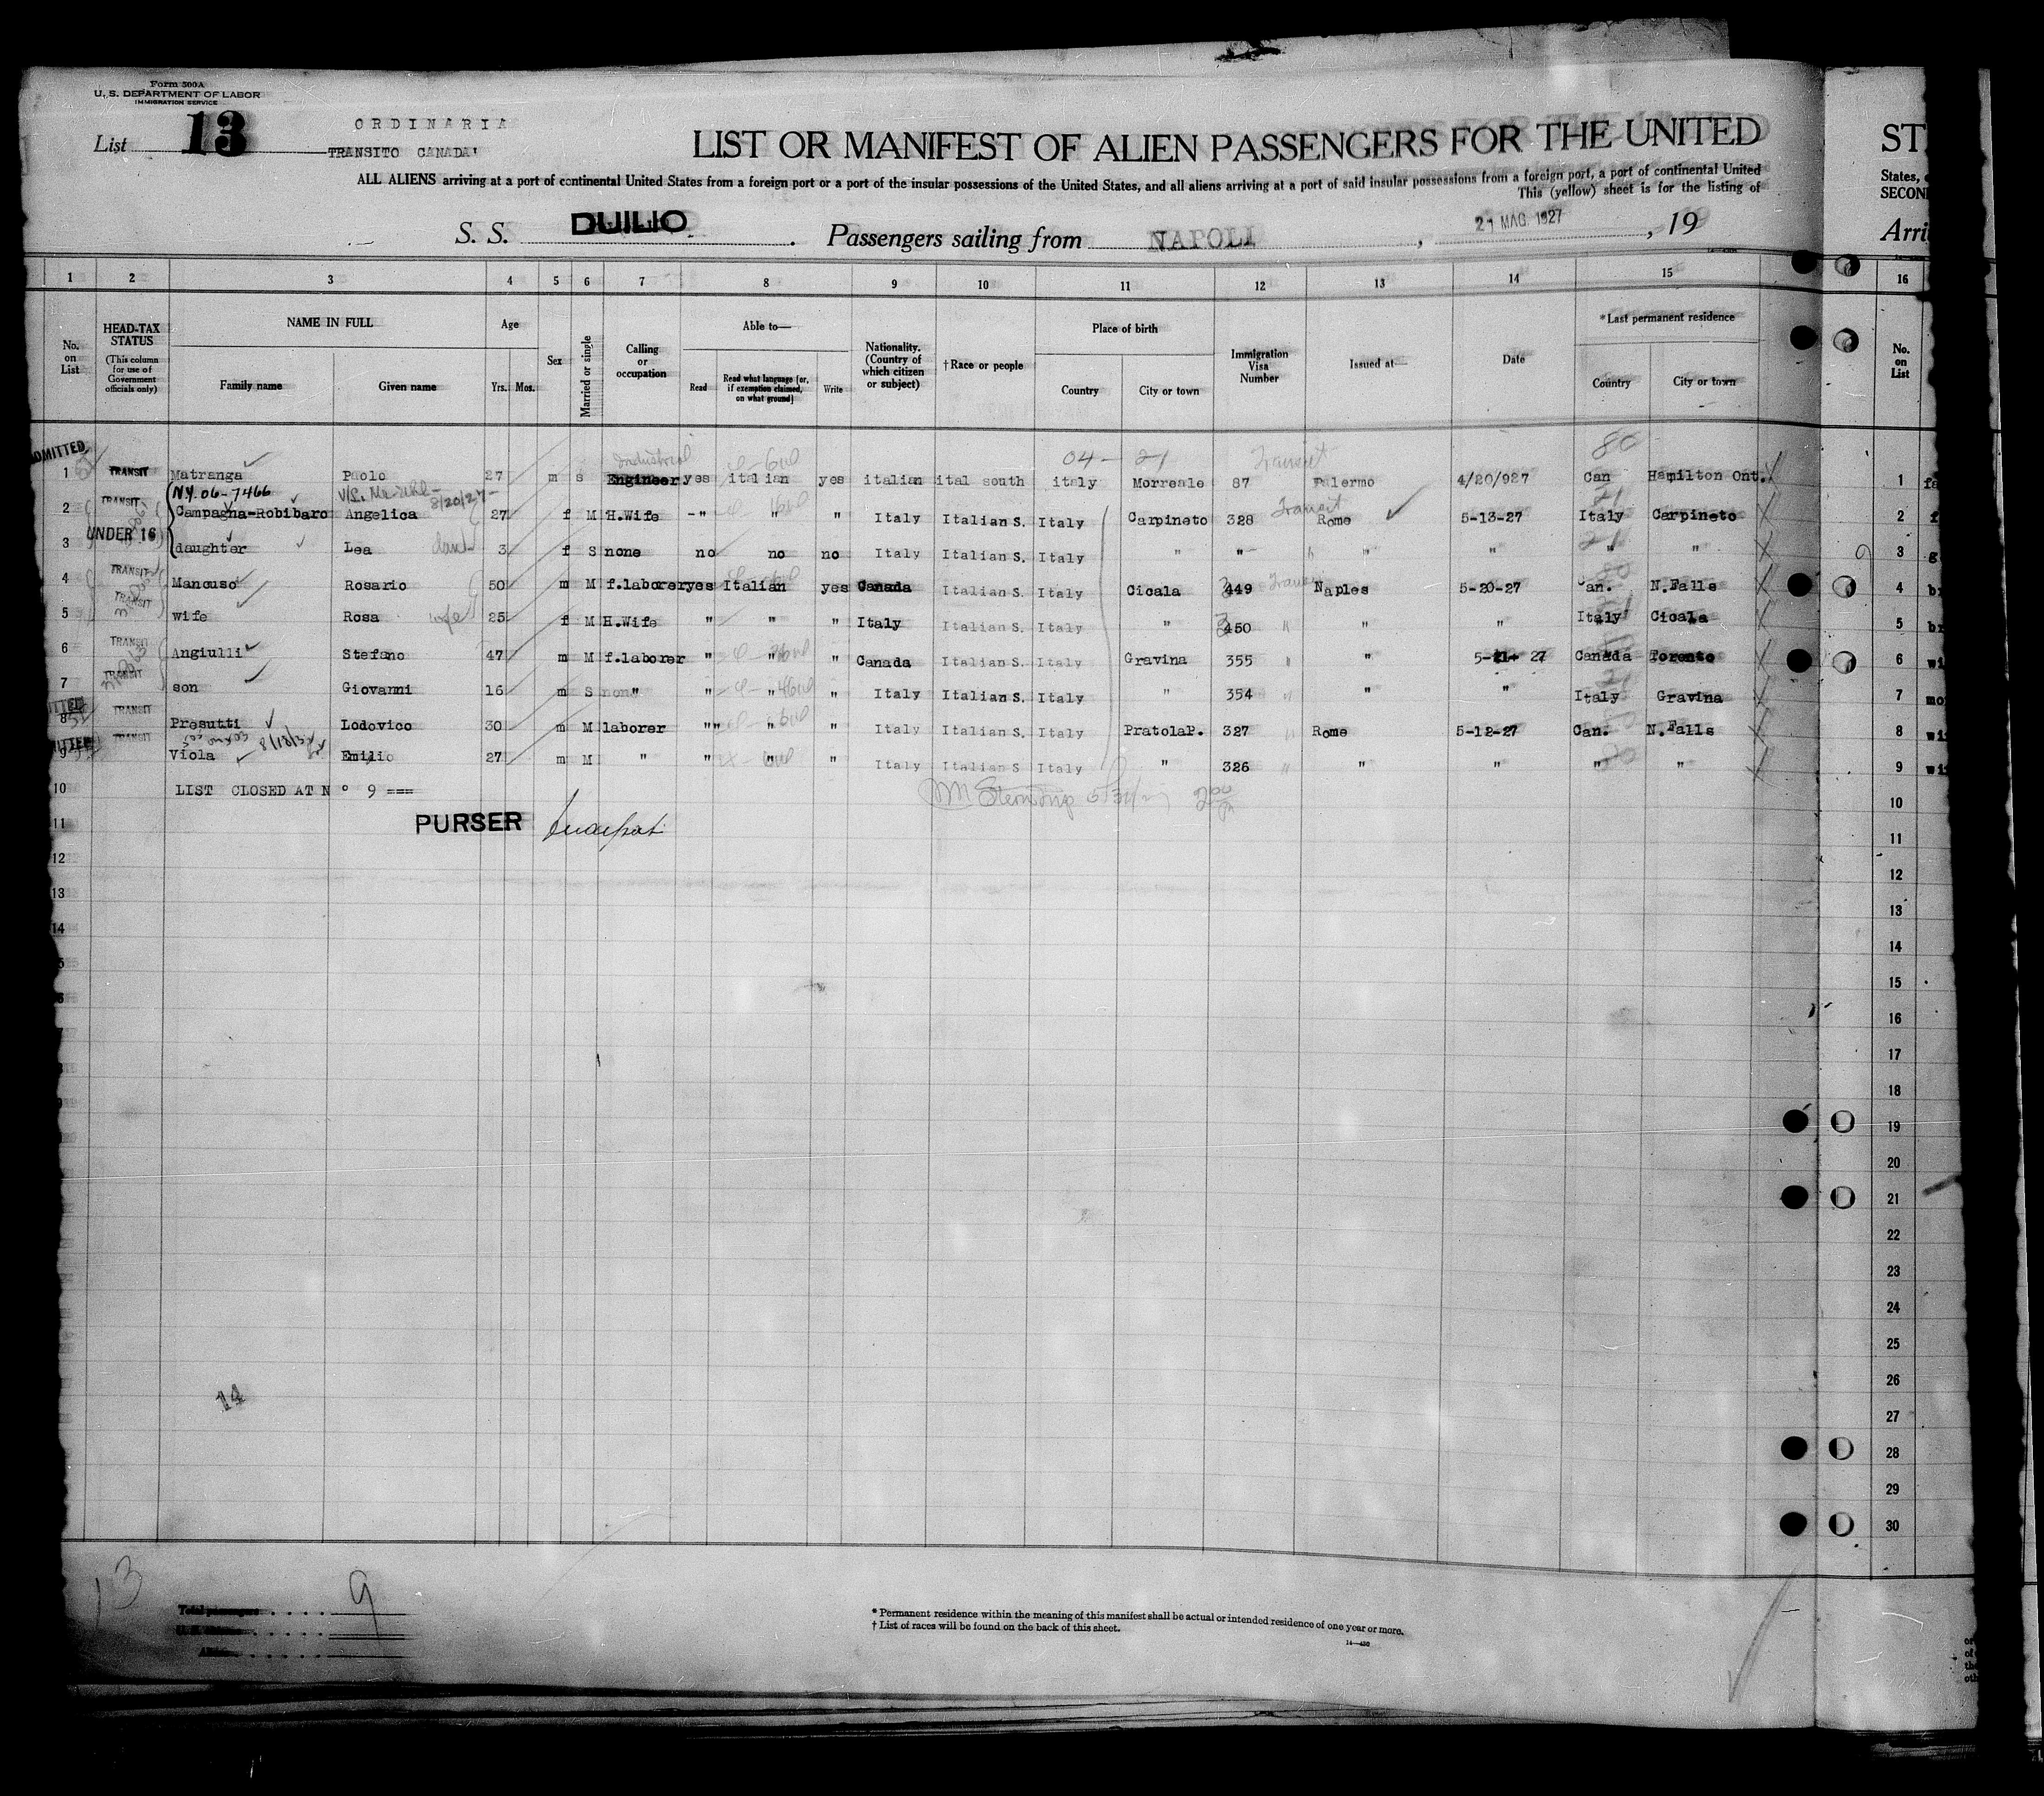 Form 500A
U. S. DEPARTMENT OF LABOR
IMMIGRATION SERVICE
List 13
ORDINARIA
TRANSITO CANADA'
LIST OR MANIFEST OF ALIEN PASSENGERS FOR THE UNITED
ALL ALIENS arriving at a port of continental United States from a foreign port or a port of the insular possessions of the United States, and all aliens arriving at a port of said insular possessions from a foreign port, a port of continental United
This (yellow) sheet is for the listing of
S. S. DUILIO. Passengers sailing from NAPOLI, 21 MAG. 1927, 19
ST
States,
SECON
Arri
1 2 3 4 5 6 7 8 9 10 11 12 13 14 15 16
No. on List
HEAD-TAX STATUS
(This column for use of Government officials only)
NAME IN FULL
Family name
Given name
Age
Yrs. Mos.
Sex
Married or single
Calling or occupation
Able to—
Read
Read what language [or, if exemption claimed, on what ground]
Write
Nationality. (Country of which citizen or subject)
†Race or people
Place of birth
Country
City or town
Immigration Visa Number
Issued at—
Date
*Last permanent residence
Country
City or town
No. on List
04 - 21 Transit 80
1 TRANSIT Matranga Paolo 27 m s Industrial Engineer yes italian yes italian ital south italy Morreale 87 Palermo 4/20/927 Can Hamilton Ont. 1
NY. 06-7466 8/20/27
2 TRANSIT Campagna-Robibaro Angelica 27 f M H.Wife -" " Italy Italian S. Italy Carpineto 328 Transit Rome 5-13-27 Italy Carpineto 2
UNDER 16
3 daughter Lea 3 f S none no no no Italy Italian S. Italy " " " " " " 3
4 TRANSIT Mancuso Rosario 50 m M f.laborer yes Italian yes Canada Italian S. Italy Cicala 449 Naples 5-20-27 Can. N.Falls 4
5 TRANSIT wife Rosa wife 25 f M H.Wife " " " Italy Italian S. Italy " 450 " " " Italy Cicala 5
6 TRANSIT Angiulli Stefano 47 m M f.laborer " " " Canada Italian S. Italy Gravina 355 " " 5-21- 27 Canada Toronto 6
7 TRANSIT son Giovanni 16 m S none " " " " Italy Italian S. Italy " 354 " " " Italy Gravina 7
8 TRANSIT Presutti Lodovico 30 m M laborer "" " " Italy Italian S. Italy PratolaP. 327 " Rome 5-12-27 Can. N.Falls 8
9 TRANSIT Viola Emilio 27 m M " " " " Italy Italian S Italy " 326 " " " " " 9
10 LIST CLOSED AT N° 9 === 10
11 PURSER 11
12 12
13 13
14 14
15
16
17
18
19
20
21
22
23
24
25
14 26
27
28
29
30
13
Total passengers . . . . 9
U. S. citizens . . . .
Aliens . . . .
* Permanent residence within the meaning of this manifest shall be actual or intended residence of one year or more.
† List of races will be found on the back of this sheet.
14—430